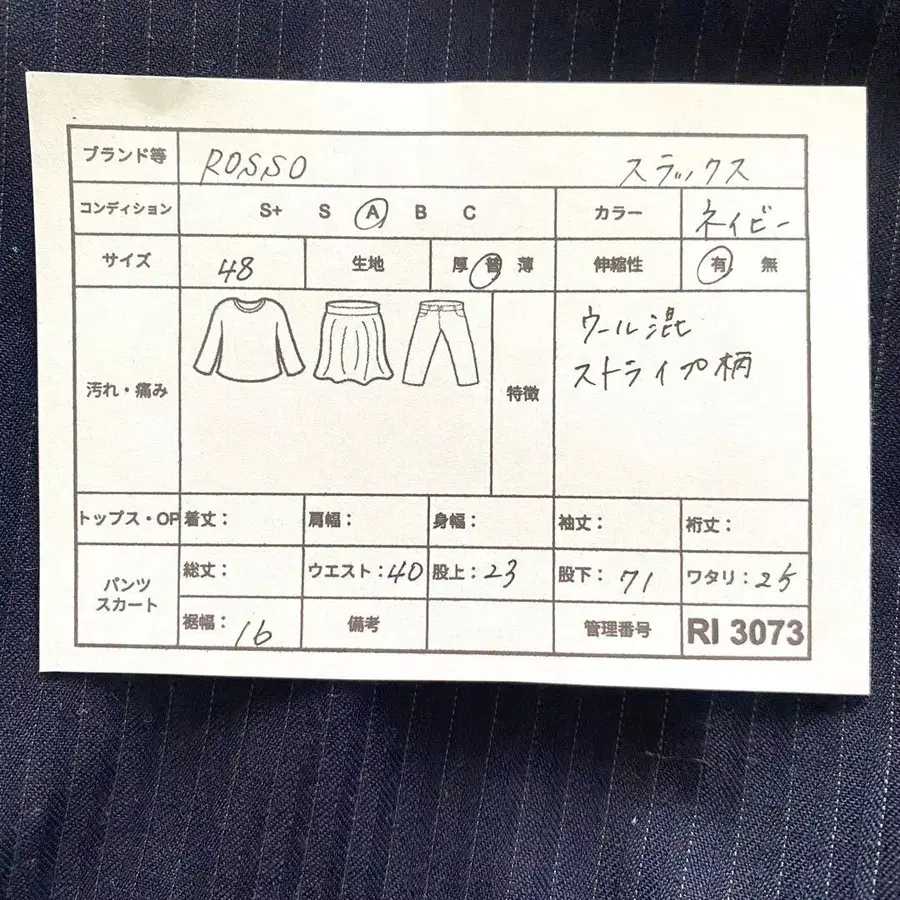 ブランド等 ROSSO スラックス
コンディション S+ S A B C カラー ネイビー
サイズ 48 生地 厚 普 薄 伸縮性 有 無
汚れ・痛み 特徴 ウール混
ストライプ柄
トップス・OP 着丈: 肩幅: 身幅: 袖丈: 裄丈:
パンツ
スカート
総丈: ウエスト:40 股上:23 股下: 71 ワタリ:25
裾幅: 16 備考 管理番号 RI 3073